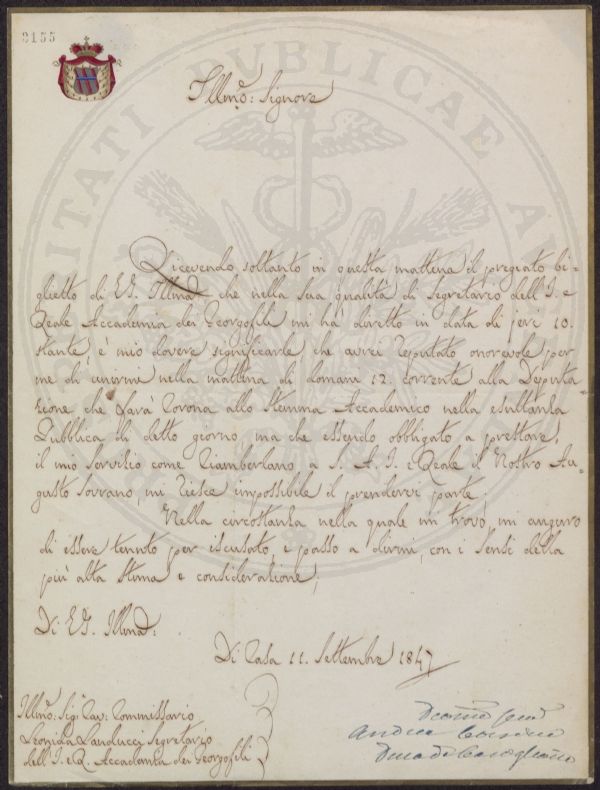 3155
Illmo: Signore
Ricevendo soltanto in questa mattina il pregiato bi-
glietto di V.S. Illma che nella sua qualità di Segretario dell'I. e
Reale Accademia dei Georgofili mi ha diretto in data di jeri 10.
stante, è mio dovere significarle che avrei reputato onorevole per
me di unirmi nella mattina di domani 12. corrente alla Deputa
zione che farà Corona allo Stemma Accademico nella esultanza
Pubblica di detto giorno, ma che essendo obbligato a prestare,
il mio Servizio come Ciamberlano a S. A. I. e Reale il Nostro Au-
gusto Sovrano, mi riesce impossibile il prendervi parte.
Nella circostanza nella quale mi trovo, mi auguro
di essere tenuto per iscusato, e passo a dirmi, con i Sensi della
più alta Stima e considerazione,
Di V.S. Illma:
Di Casa 11. Settembre 1847
Illmo: Sigr. Cav: Commissario
Leonida Landucci Segretario
dell'I. e R. Accademia dei Georgofili
Andrea Corsini
Duca di Casigliano
PROSPERITATI PUBLICAE AU